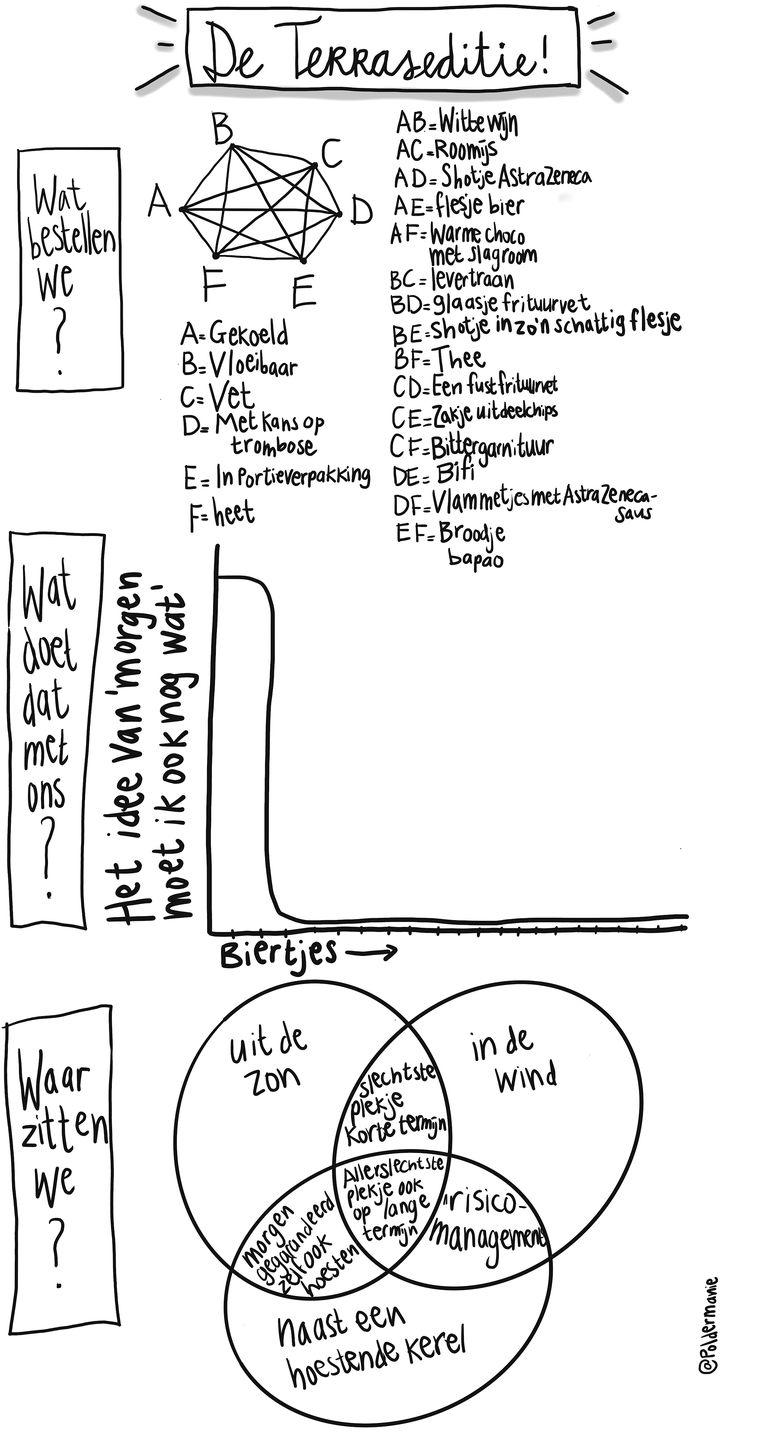 De Terraseditie!
Wat
bestellen
we
?
B
C
A
D
F
E
A=Gekoeld
B=Vloeibaar
C=Vet
D=Met kans op
trombose
E=In Portieverpakking
F=heet
AB=Witte wijn
AC=Roomijs
AD=Shotje AstraZeneca
AE=flesje bier
AF=Warme choco
met slagroom
BC=levertraan
BD=glaasje frituurvet
BE=Shotje in zo'n schattig flesje
BF=Thee
CD=Een fust frituurvet
CE=Zakje uitdeelchips
CF=Bittergarnituur
DE=Bifi
DF=Vlammetjes met AstraZeneca-
saus
EF=Broodje
bapao
Wat
doet
dat
met
ons
?
Het idee van 'morgen
moet ik ook nog wat'
Biertjes →
Waar
zitten
we
?
uit de
zon
in de
wind
slechtste
plekje
korte termijn
Allerslechtste
plekje ook
op lange
termijn
risico-
management
morgen
gegarandeerd
zelf ook
hoesten
naast een
hoestende kerel
@Poldermanie